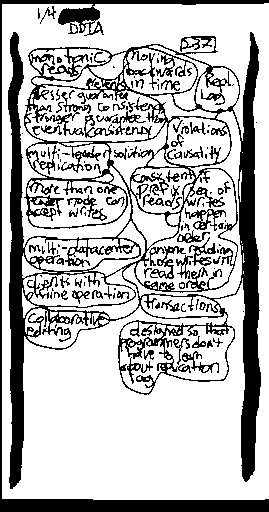 1/4
DDIA
237
monotonic
reads
moving
backwards
in time
Repl.
Lag
prevents
lesser guarantee
than strong consistency
stronger guarantee than
eventual consistency
violations
of
causality
multi-leader solution
replication
consistent
prefix
reads
if
seq. of
writes
happen
in certain
order
more than one
leader node can
accept writes
anyone reading
those writes will
read them in
same order
multi-datacenter
operation
clients with
offline operation
transactions
collaborative
editing
designed so that
programmers don't
have to
about replication
lag